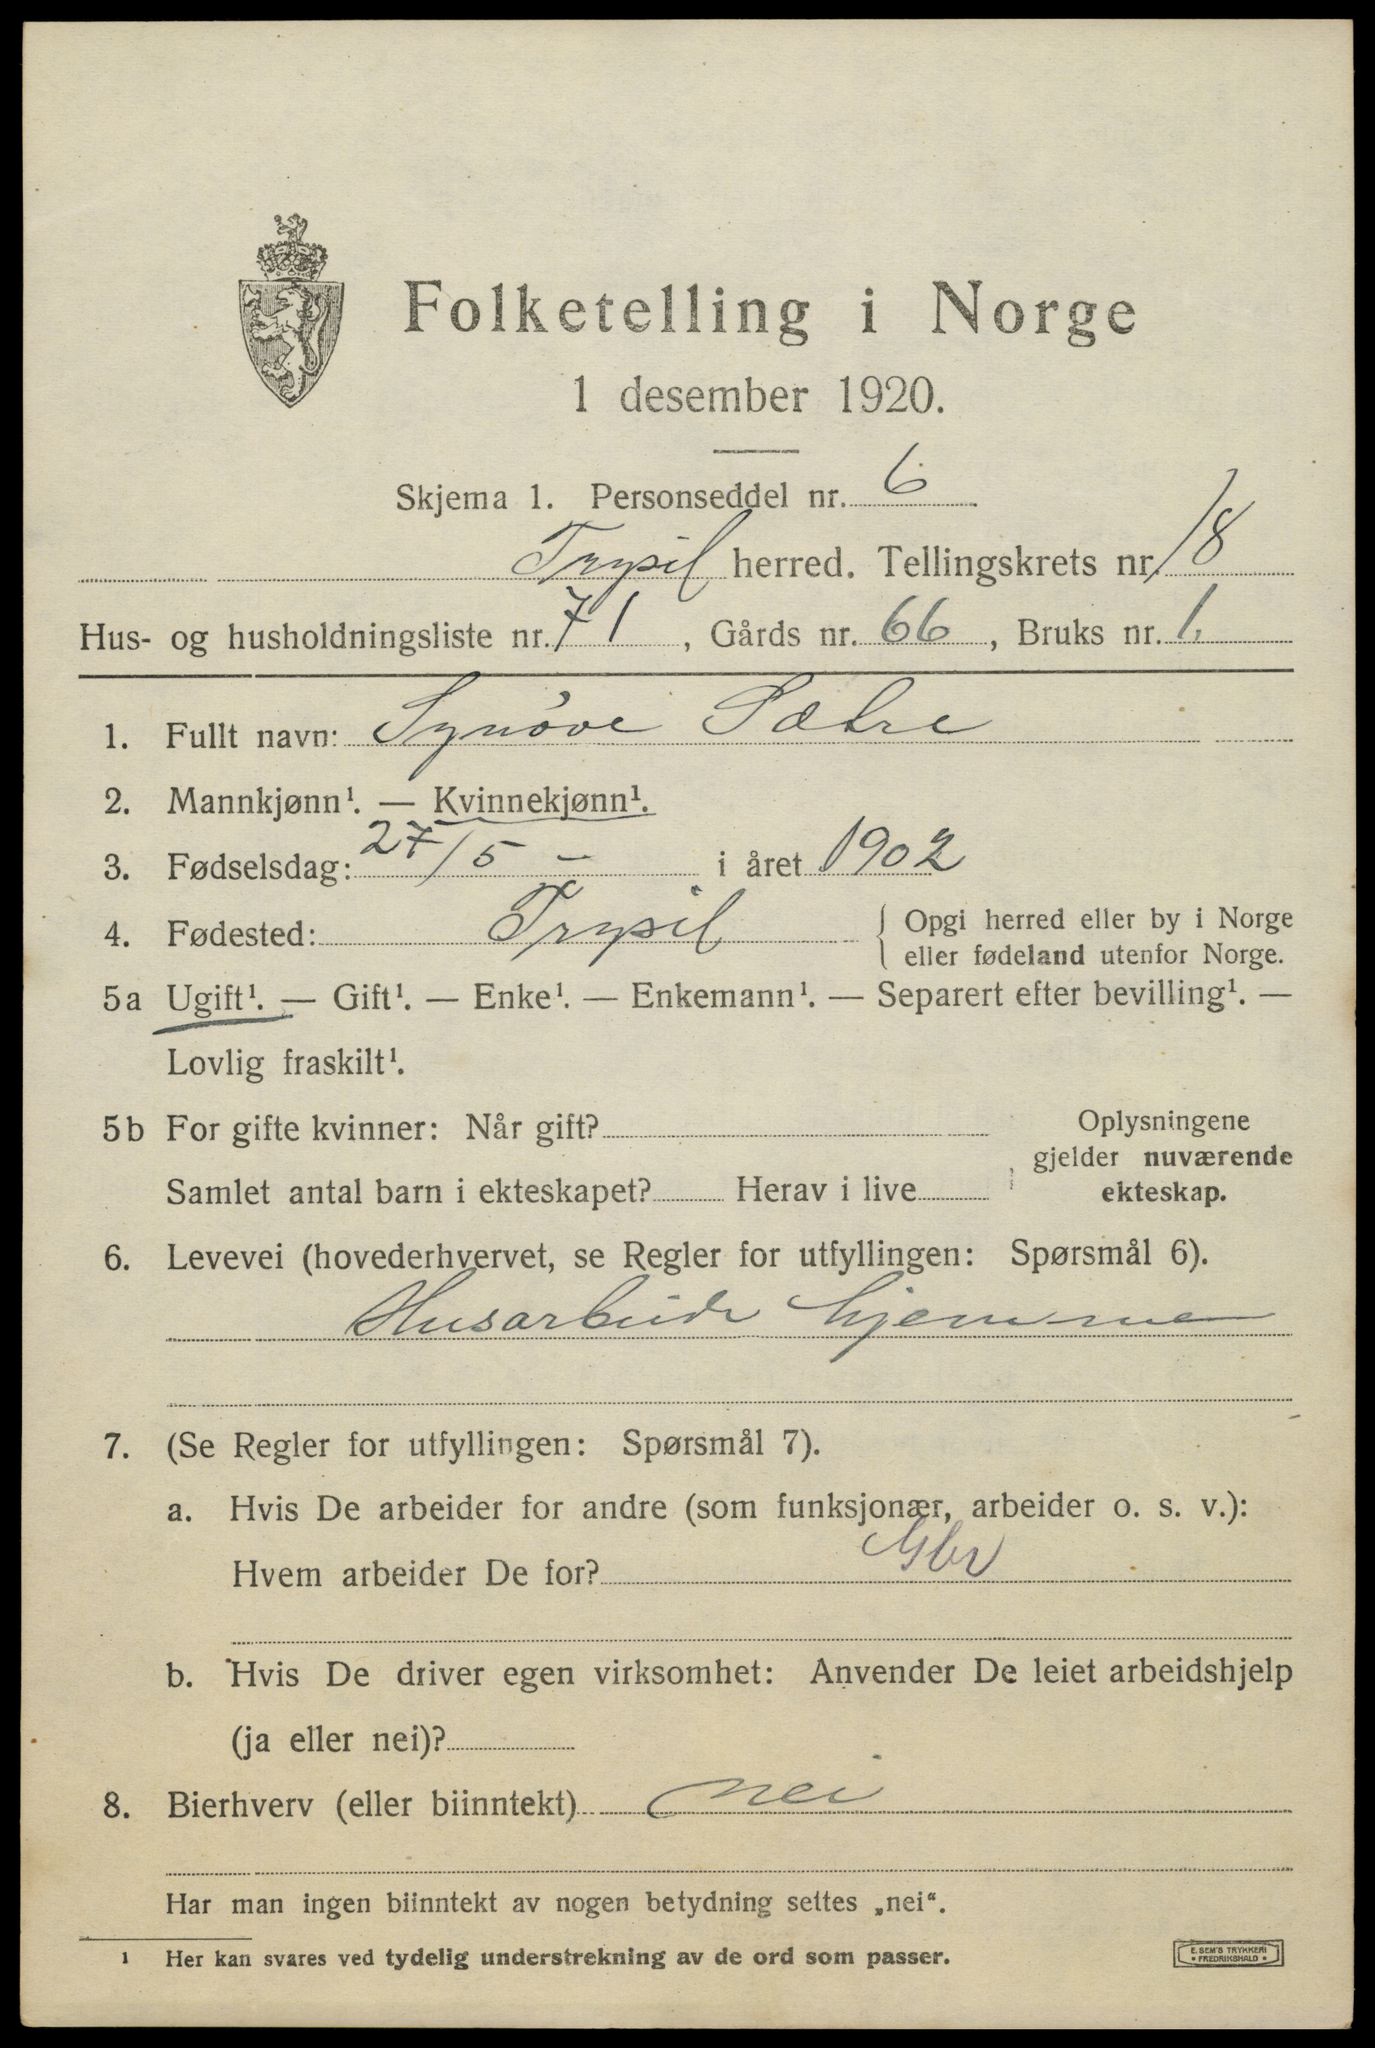 Folketelling i Norge
1 desember 1920.
Skjema 1. Personseddel nr. 6
Trysil herred. Tellingskrets nr. 18
Hus- og husholdningsliste nr. 71, Gårds nr. 66, Bruks nr. 1.
1. Fullt navn: Synöve Sætre
2. Mannkjønn¹. — Kvinnekjønn¹.
3. Fødselsdag: 27/5 – i året 1902
4. Fødested: Trysil { Opgi herred eller by i Norge
eller fødeland utenfor Norge.
5a Ugift¹. — Gift¹. — Enke¹. — Enkemann¹. — Separert efter bevilling¹. —
Lovlig fraskilt¹.
5b For gifte kvinner: Når gift? Oplysningene
gjelder nuværende
Samlet antal barn i ekteskapet? Herav i live ekteskap.
6. Levevei (hovederhvervet, se Regler for utfyllingen: Spørsmål 6).
Husarbeide hjemme
7. (Se Regler for utfyllingen: Spørsmål 7).
a. Hvis De arbeider for andre (som funksjonær, arbeider o. s. v.):
Hvem arbeider De for? Gbr
b. Hvis De driver egen virksomhet: Anvender De leiet arbeidshjelp
(ja eller nei)?
8. Bierhverv (eller biinntekt) nei
Har man ingen biinntekt av nogen betydning settes „nei“.
¹ Her kan svares ved tydelig understrekning av de ord som passer.
E. SEM'S TRYKKERI
• FREDRIKSHALD •